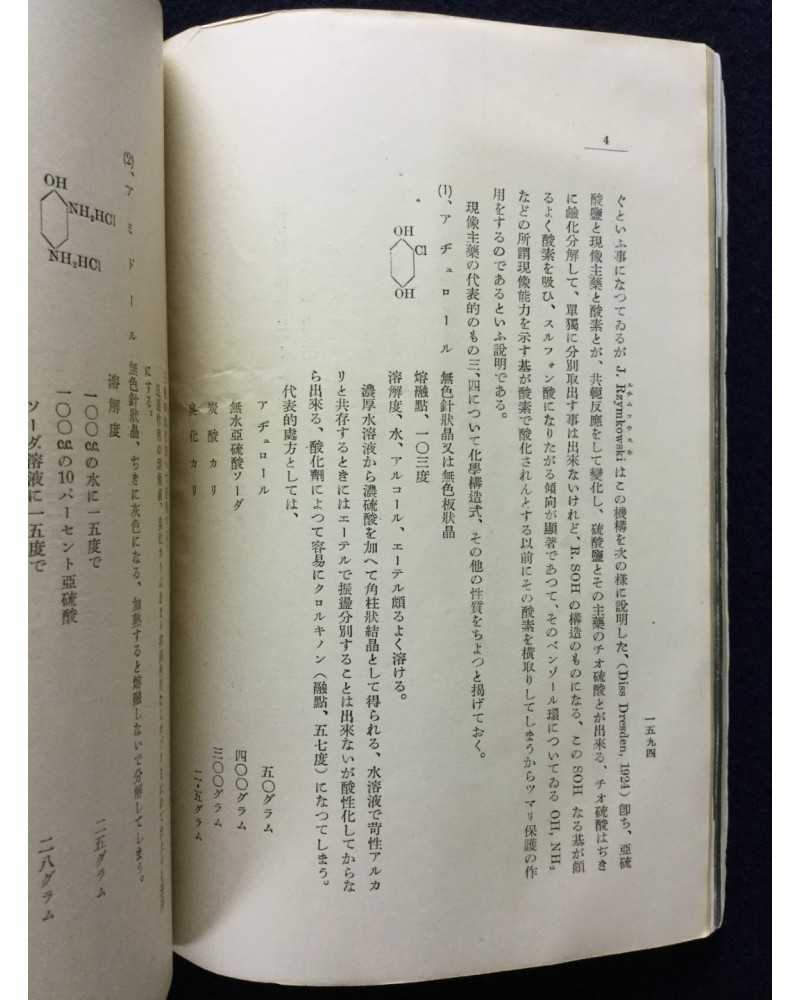 4
一五九四
ぐといふ事になつてゐるが J. Rzymkowski はこの機構を次の樣に說明した、(Diss Dresden, 1924) 卽ち、亞硫
酸鹽と現像主藥と酸素とが、共軛反應をして變化し、硫酸鹽とその主藥のチオ硫酸とが出來る、チオ硫酸はぢき
に鹼化分解して、單獨に分別取出す事は出來ないけれど、R. SOH の構造のものになる、この SOH なる基が頗
るよく酸素を吸ひ、スルフォン酸になりたがる傾向が顯著であつて、そのベンゾール環についてゐる OH, NH₂
などの所謂現像能力を示す基が酸素で酸化されんとする以前にその酸素を橫取りしてしまうからツマリ保護の作
用をするのであるといふ說明である。
現像主藥の代表的のもの三、四について化學構造式、その他の性質をちよつと揭げておく。
(1)、アヂュロール 無色針狀晶又は無色板狀晶
OH
Cl
OH
熔融點、一〇三度
溶解度、水、アルコール、エーテル頗るよく溶ける。
濃厚水溶液から濃硫酸を加へて角柱狀結晶として得られる、水溶液で苛性アルカ
リと共存するときにはエーテルで振盪分別することは出來ないが酸性化してからな
ら出來る、酸化劑によつて容易にクロルキノン(融點、五七度)になつてしまう。
代表的處方としては、
アヂュロール 五〇グラム
無水亞硫酸ソーダ 四〇〇グラム
炭酸カリ 三〇〇グラム
臭化カリ 二・五グラム
にする。
(2)、アミドール 無色針狀晶、ぢきに灰色になる、加熱すると熔融しないで分解してしまう。
OH
NH₂HCl
NH₂HCl
溶解度
一〇〇cc.の水に一五度で 二五グラム
一〇〇cc.の10パーセント亞硫酸
ソーダ溶液に一五度で 二八グラム